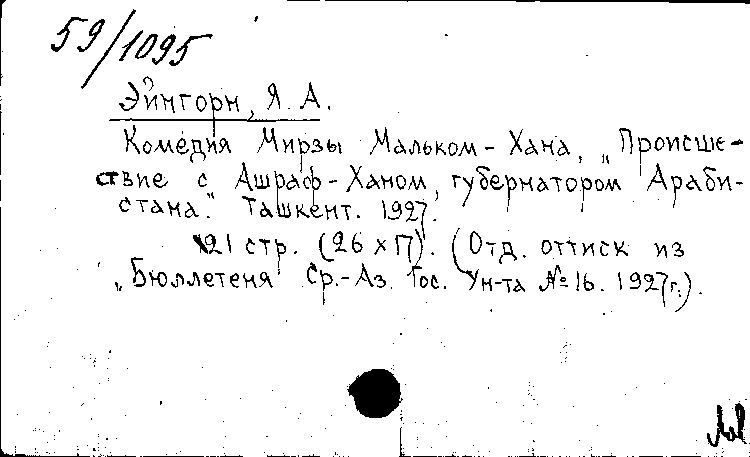 59/1095
Эйнгорн, Я. А.
Комедия Мирзы Мальком-Хана, „Происше-
ствие с Ашраф-Ханом, губернатором Араби-
стана." Ташкент. 1927.
21 стр. (26 х П). (Отд. оттиск из
„Бюллетеня Ср.-Аз. Гос. Ун-та №16. 1927(г.).